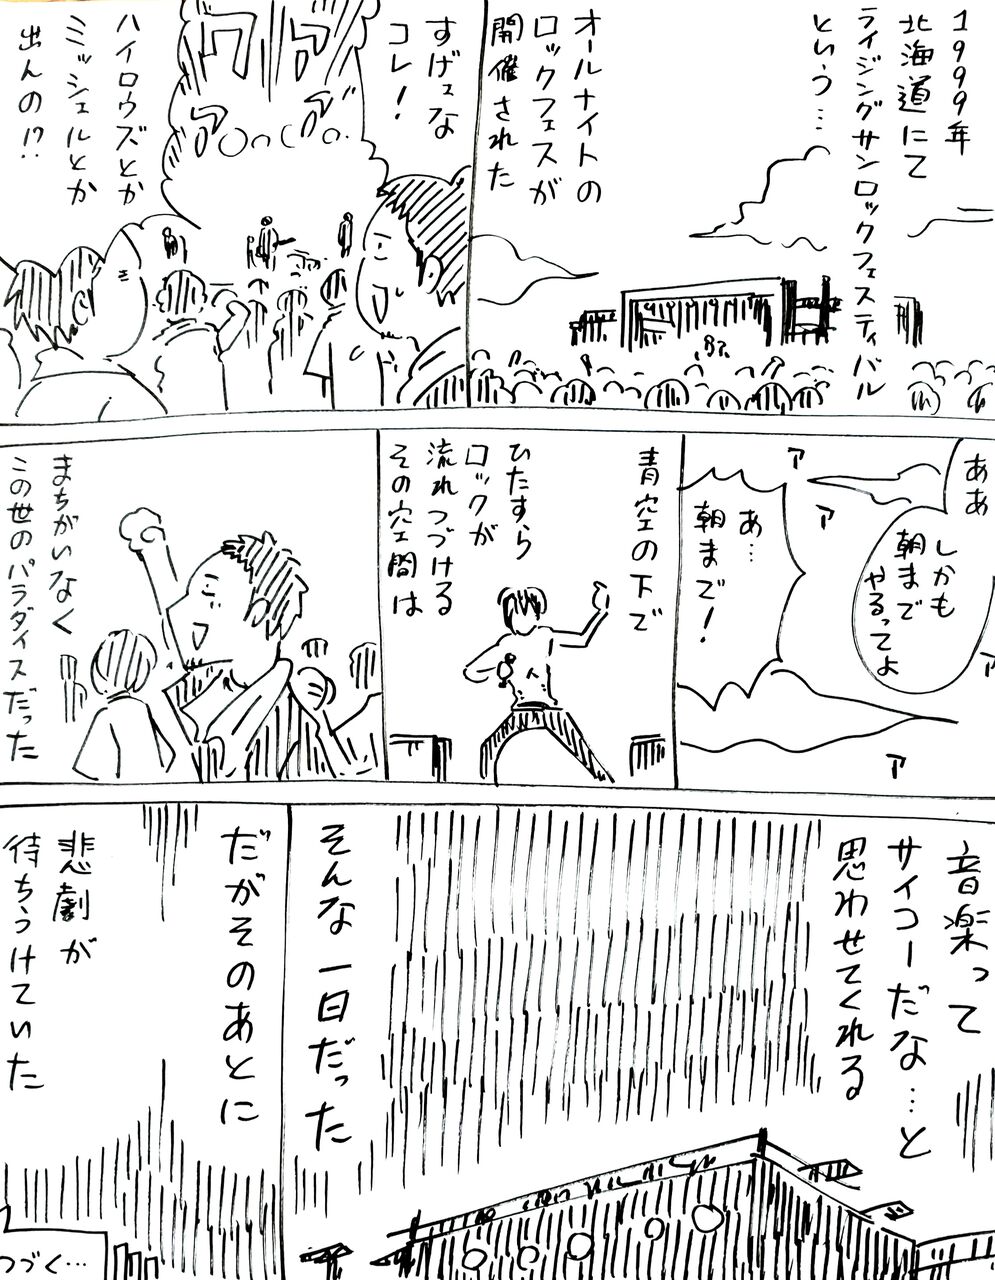 1999年
北海道にて
ライジングサンロックフェスティバル
という…
オールナイトの
ロックフェスが
開催された
すげェな
コレ!
ワアアア゛
ハイロウズとか
ミッシェルとか
出んの!?
ああ
しかも
朝まで
やるってよ
あ…
朝まで!
ア
ア
ア
ア
青空の下で
ひたすら
ロックが
流れつづける
その空間は
まちがいなく
この世のパラダイスだった
音楽って
サイコーだな…と
思わせてくれる
そんな一日だった
だがそのあとに
悲劇が
待ちうけていた
つづく…